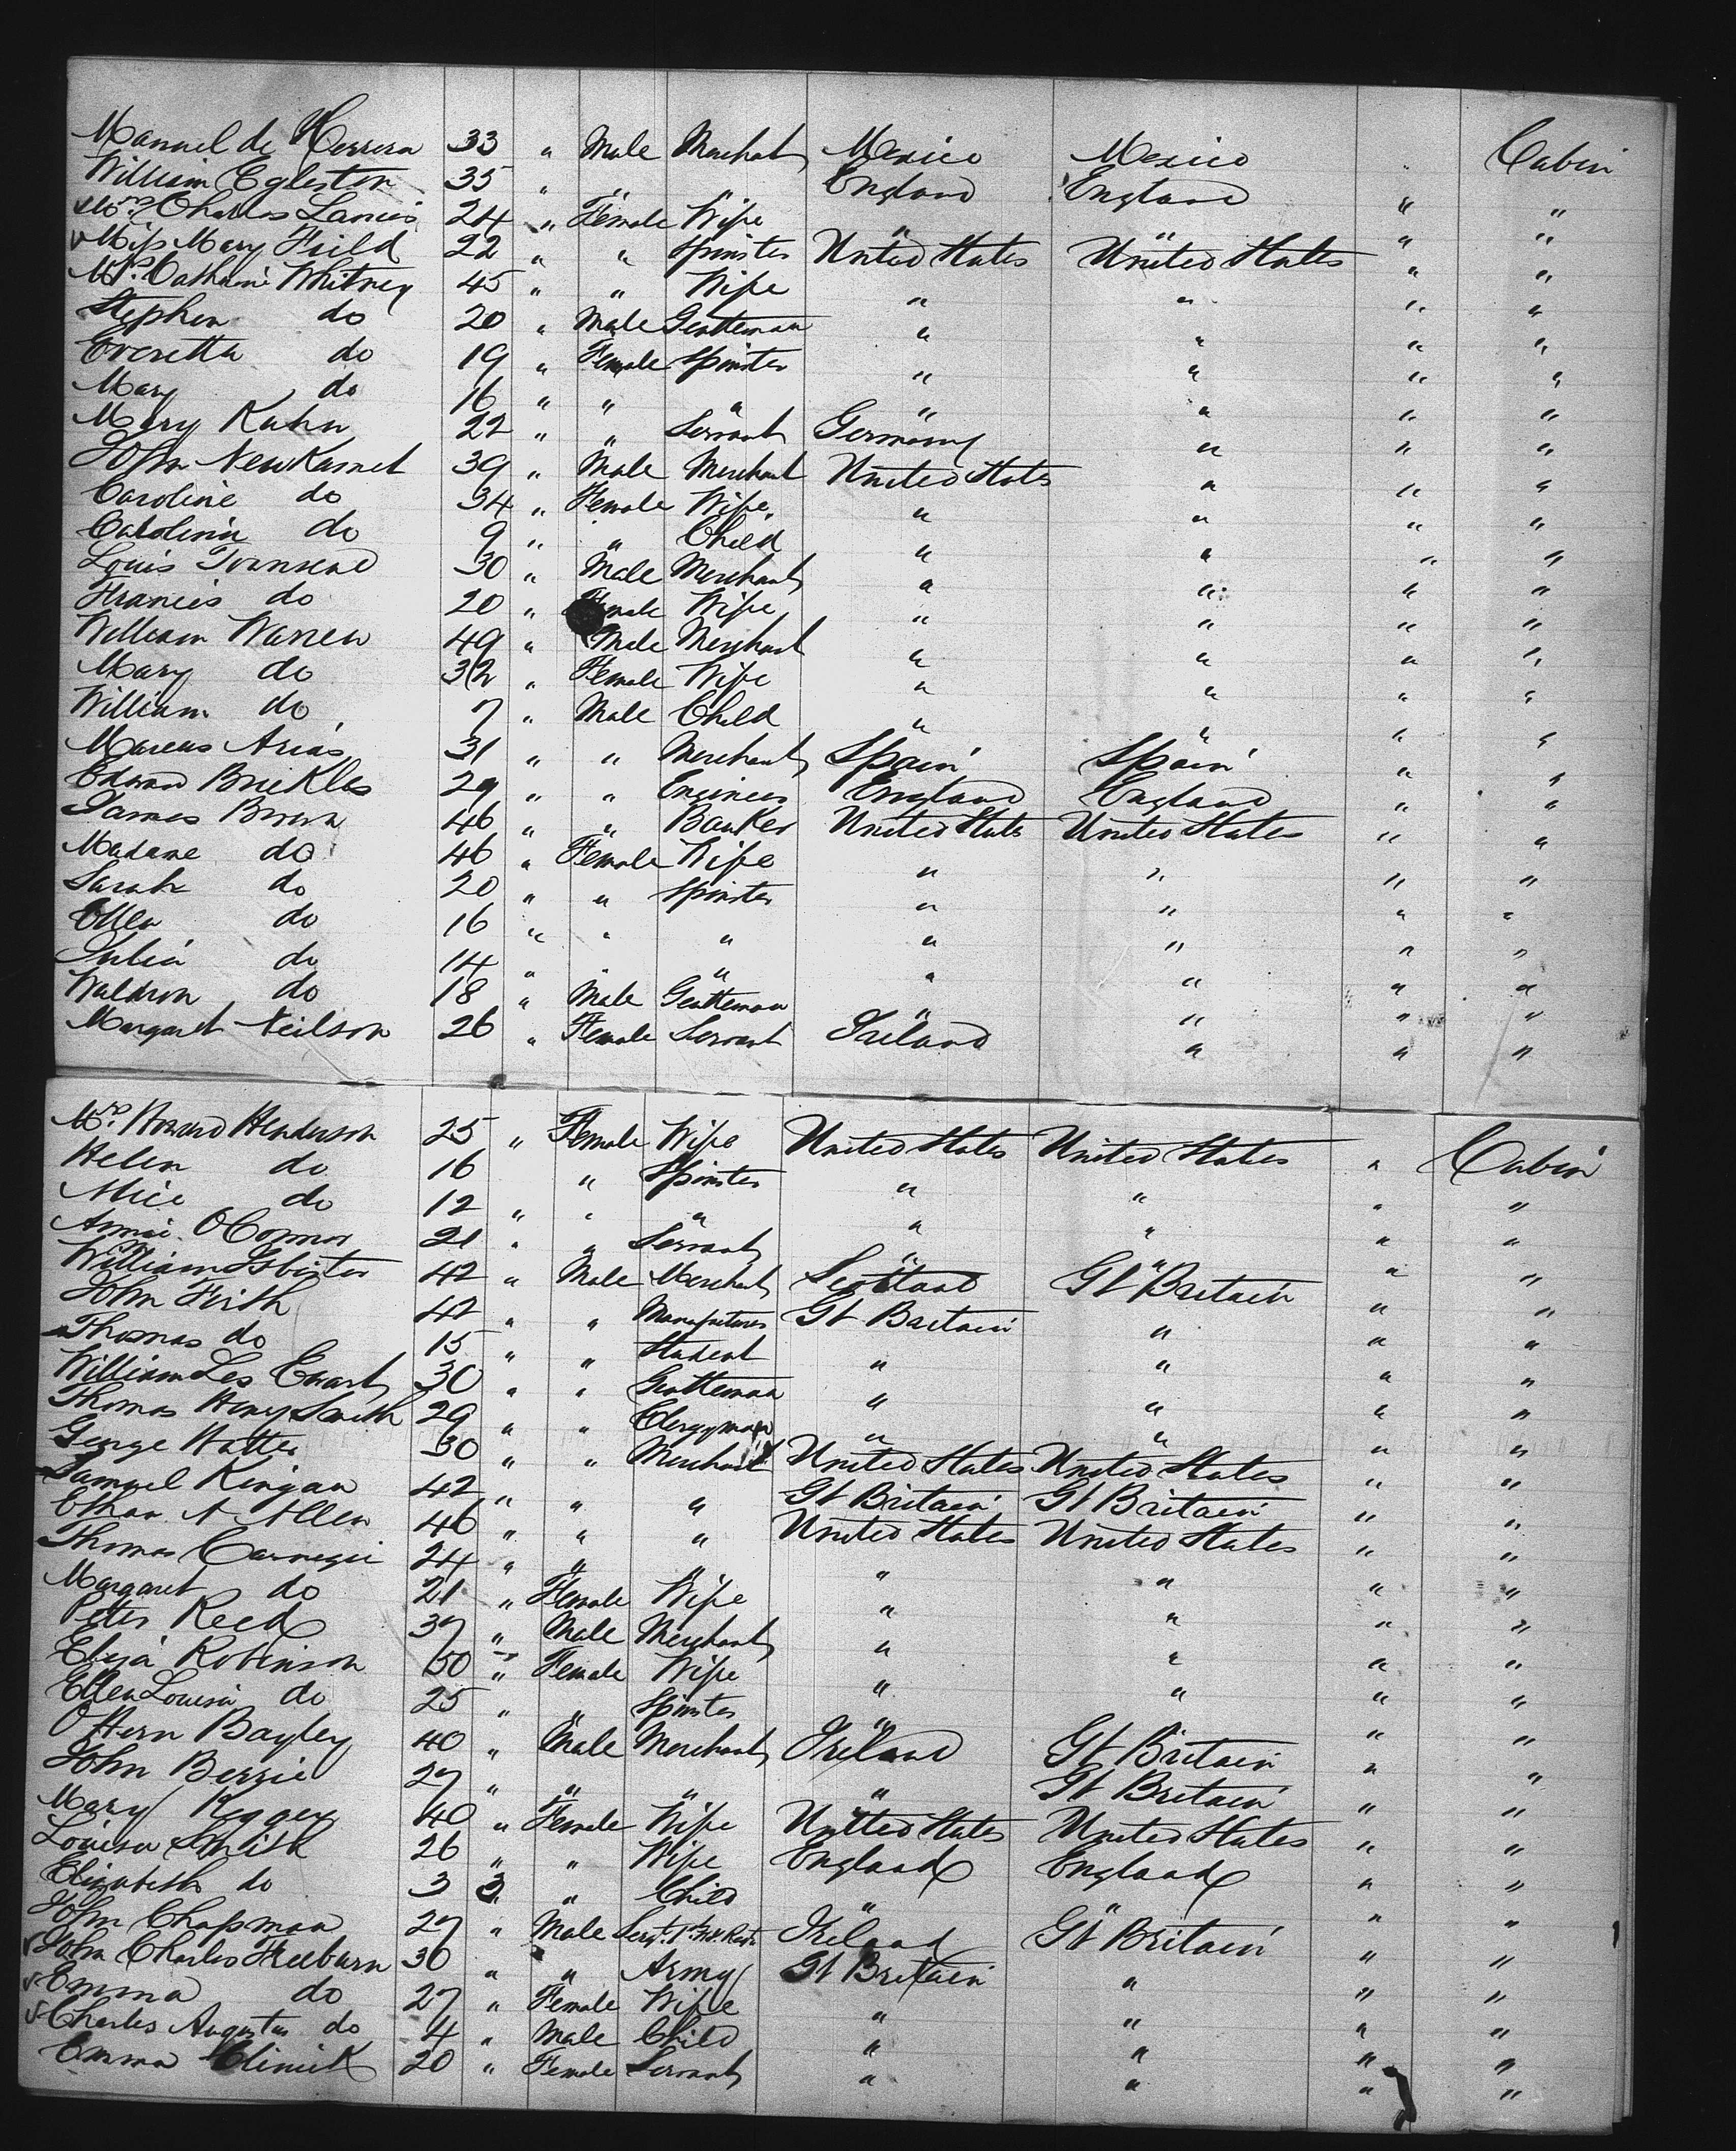 Manuel de Herrera 33 " Male Merchant Mexico Mexico " Cabin
William Egleston 35 " " " England England " "
Mrs. Charles Lanier 24 " Female Wife " " " "
Miss Mary Field 22 " " Spinster United States United States " "
Mrs. Catharine Whitney 45 " " Wife " " " "
Stephen do 20 " Male Gentleman " " " "
Everetta do 19 " Female Spinster " " " "
Mary do 16 " " " " " " "
Mary Kuhn 22 " " Servant Germany " " "
John Newkumet 39 " Male Merchant United States " " "
Caroline do 34 " Female Wife " " " "
Catolina do 9 " " Child " " " "
Louis Townsend 30 " Male Merchant " " " "
Francis do 20 " Female Wife " " " "
William Warren 49 " Male Merchant " " " "
Mary do 32 " Female Wife " " " "
William do 7 " Male Child " " " "
Marcus Arias 31 " " Merchant Spain Spain " "
Edward Brickles 29 " " Engineer England England " "
James Brown 46 " " Banker United States United States " "
Madame do 46 " Female Wife " " " "
Sarah do 20 " " Spinster " " " "
Ellen do 16 " " " " " " "
Julia do 14 " " " " " " "
Waldron do 18 " Male Gentleman " " " "
Margaret Neilson 26 " Female Servant Ireland " " "
Mrs. Howard Henderson 25 " Female Wife United States United States " Cabin
Helen do 16 " Spinster " " " "
Alice do 12 " " " " " " "
Annie O'Connor 21 " " Servant " " " "
William Isbister 42 " Male Merchant Scotland Gt Britain " "
John Firth 42 " " Manufacturer Gt Britain " " "
Thomas do 15 " " Student " " " "
William Les Ewart 30 " " Gentleman " " " "
Thomas Henry Smith 29 " " Clergyman " " " "
George Hatter 30 " " Merchant United States United States " "
Samuel Kingan 42 " " " Gt Britain Gt Britain " "
Ethan A Allen 46 " " " United States United States " "
Thomas Carnegie 24 " " " " " " "
Margaret do 21 " Female Wife " " " "
Peter Reed 37 " Male Merchant " " " "
Eliza Robinson 50 " Female Wife " " " "
Ellen Louisa do 25 " " Spinster " " " "
O'Hern Bayley 40 " Male Merchant Ireland Gt Britain " "
John Berrie 27 " " " " Gt Britain " "
Mary 40 " Female Wife United States United States " "
Louisa Smith 26 " " Wife England England " "
Elizabeth do 3 3 " " Child " " " "
John Chapman 27 " Male Ireland Gt Britain " "
John Charles Freeburn 30 " " Army Gt Britain " " "
Emma do 27 " Female Wife " " " "
Charles Augustus do 4 " Male Child " " " "
Emma Climick 20 " Female Servant " " " "